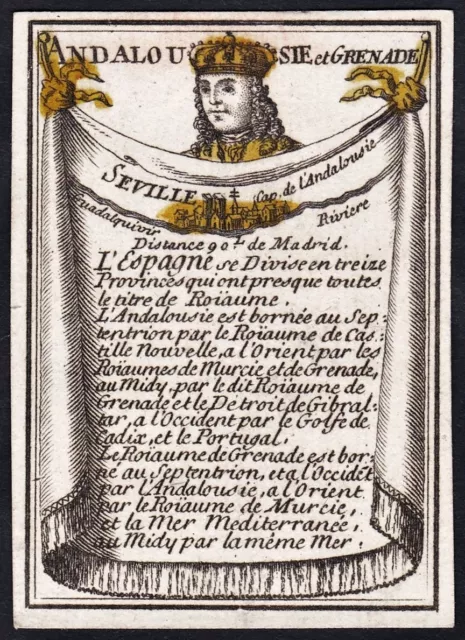 ANDALOUSIE et GRENADE
SEVILLE Cap. de l'Andalousie
Guadalquivir Riviere
Distance 90 L. de Madrid.
L'Espagne se Divise en treize
Provinces qui ont presque toutes
le titre de Roiaume.
L'Andalousie est bornée au Sep:
tentrion par le Roïaume de Cas:
tille Nouvelle, a l'Orient par les
Roïaumes de Murcie et de Grenade,
au Midy, par le dit Roïaume de
Grenade et le Détroit de Gibral:
tar, a l'Occident par le Golfe de
Cadix, et le Portugal.
Le Roiaume de Grenade est bor:
né au Septentrion, et a l'Occidẽt
par l'Andalousie, a l'Orient
par le Roïaume de Murcie,
et la Mer Mediterranée,
au Midy par la même Mer.